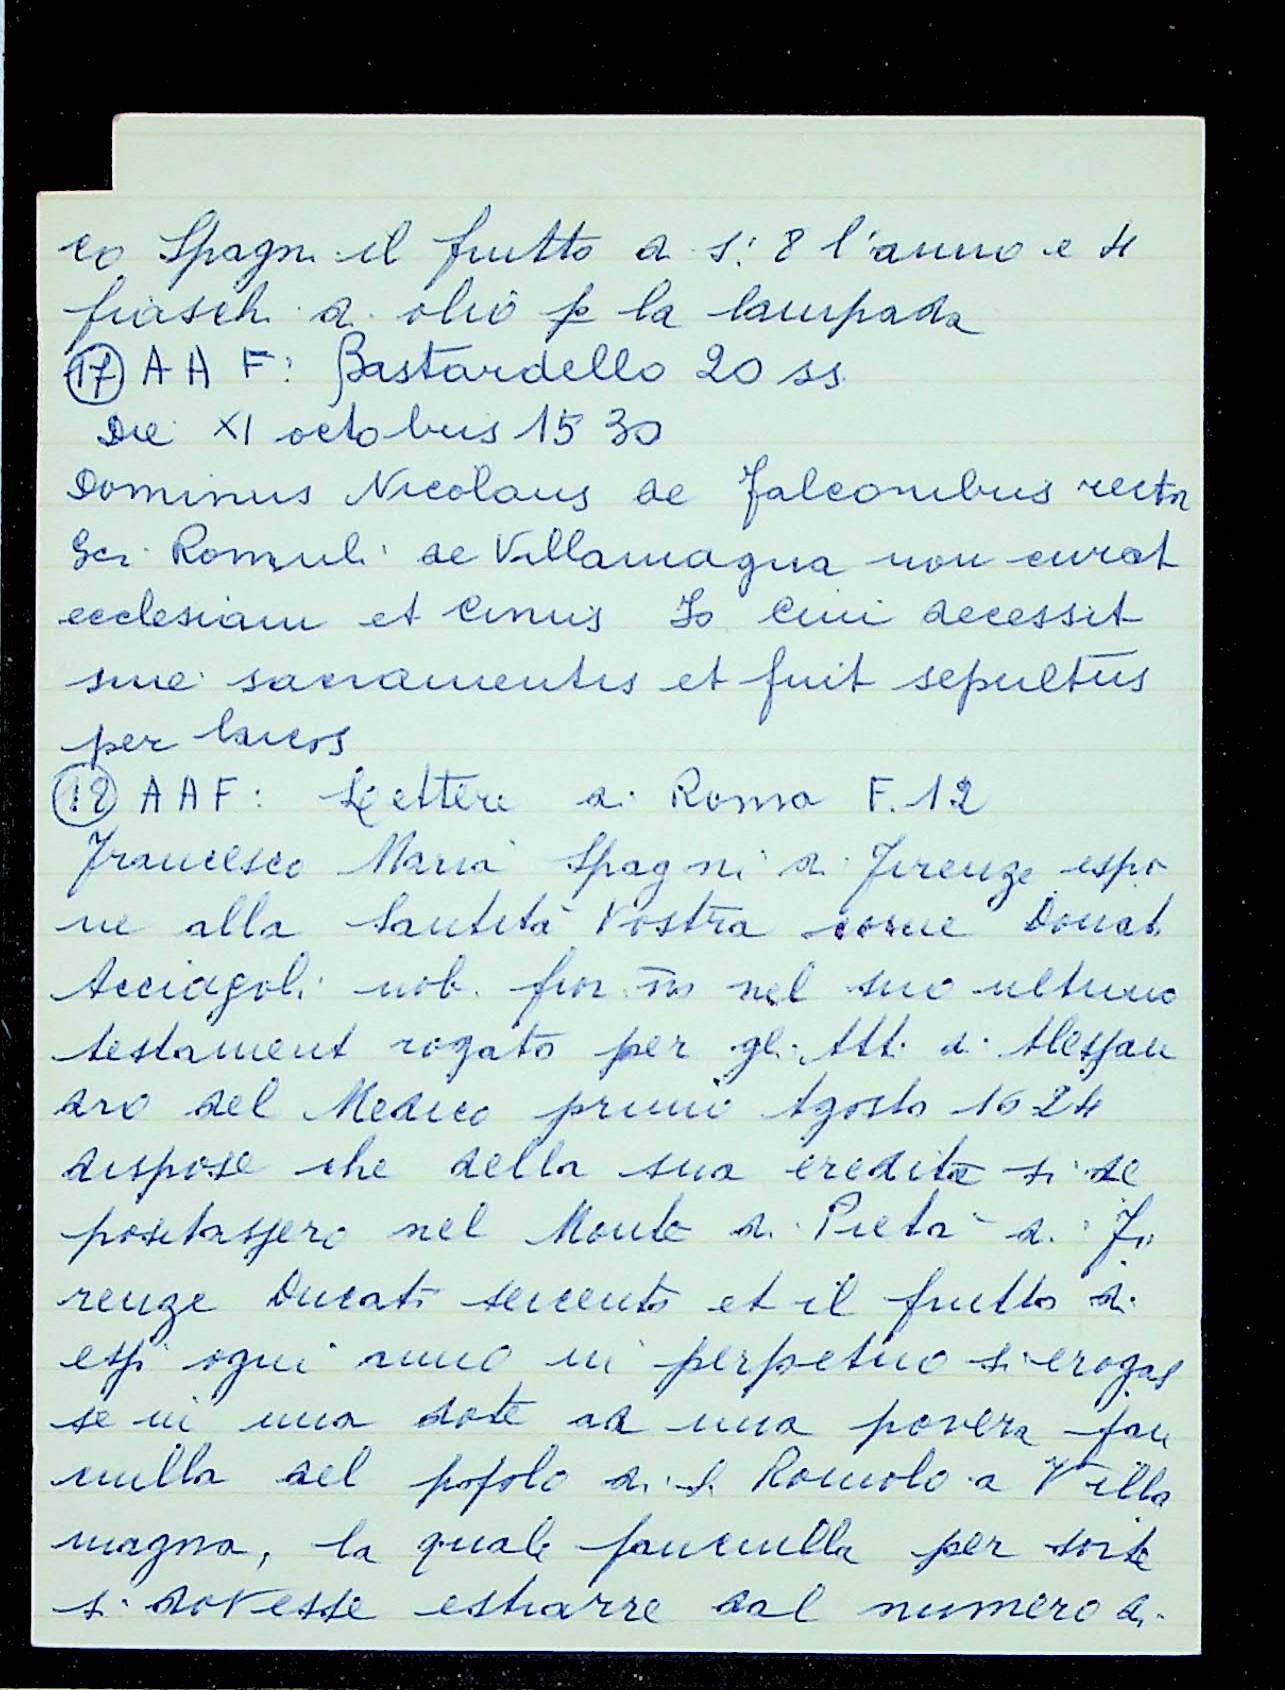 co Spagni il frutto di s: 8 l'anno e 4
fiaschi di olio p la lampada
17 A A F: Bastardello 20 ss.
Die XI octobus 1530
Dominus Nicolaus de Falconibus rector
Sci Romuli de Villamagna non curat
ecclesiam et Cinus Io Cini decessit
sine sacramentis et fuit sepultus
per laicos
A A F: Lettere di Roma F. 12
Francesco Maria Spagni di Firenze espo
ne alla Santità Vostra come Donat
Acciagoli nob. fior. nel suo ultimo
testament rogato per gli Att. di Alessan
dro del Medico primo Agosto 1624
dispose che della sua eredità si de
positassero nel Monte di Pietà di Fi
renze Ducati seicento et il frutto di
essi ogni anno in perpetuo si erogas
se in una dote ad una povera fan
ciulla del popolo di S. Romolo a Villa
magna, la quale fanciulla per sorte
si dovesse estrarre dal numero di